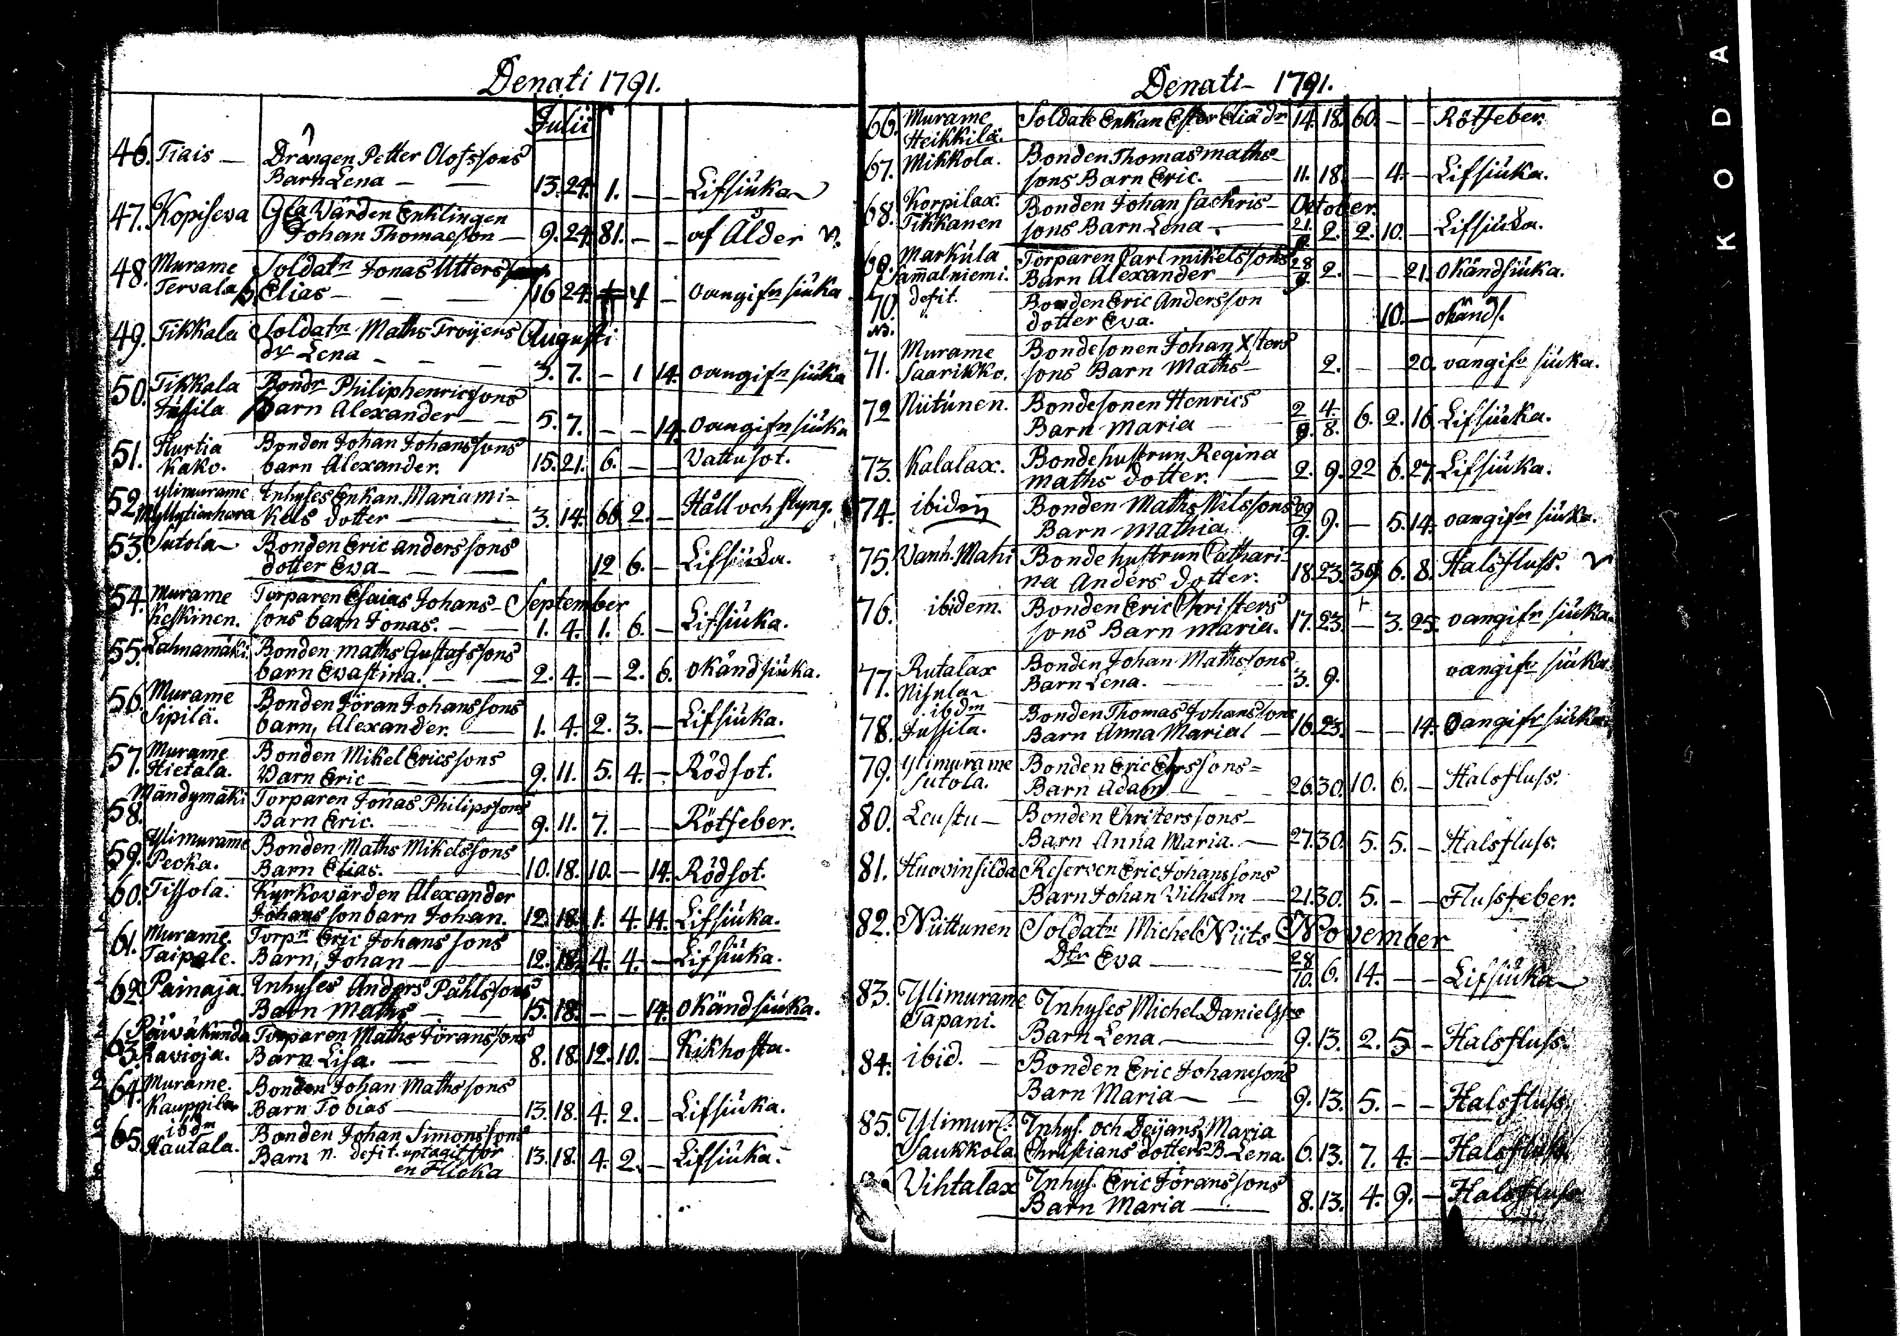 Denati 1791.
Julii
46. Tiais — Drängen Petter Olofssons
Barn Lena — — 13. 24. 1. — — Lifsiuka
47. Kopiseva Gla Värden Enklingen
Johan Thomaeson — 9. 24. 81. — — af Ålder
48. Murame Soldatn Jonas Utters
Tervala Elias — — — 16 24. 4 — oangifn siuka
49. Tikkala Soldatn Maths Troijens Augusti
dr Lena — — 3. 7. — 1 14. oangifn siuka
50. Tikkala Bondr Philip henricsons
Jussila barn Alexander — 5. 7. — — 14. oangifn siuka
51. Hurtia Bonden Johan Johanssons
Kako. barn Alexander. 15. 21. 6. — — Vattusot.
52. Ylimurame Inhyses Enkan Maria mi-
kels dotter — 3. 14. 66. 2. — Håll och styng.
53. Sutola Bonden Eric anderssons
dotter Eva — 12 6. — Lifsiuka.
54. Murame Torparen Esaias Johans- September
Keskinen. sons barn Jonas. — 1. 4. 1. 6. — Lifsiuka.
55. Lahnamäki. Bonden maths Gustafssons
barn Evastina. — 2. 4. — 2. 6. okänd siuka.
56. Murame Bonden Jöran Johanssons
Sipilä. barn, Alexander. — 1. 4. 2. 3. — Lifsiuka.
57. Murame Bonden Mikel Ericssons
Hietala. Barn Eric — 9. 11. 5. 4. — Rödsot.
58. Mändymäki Torparen Jonas Philipssons
Barn Eric. — 9. 11. 7. — — Rötfeber.
59. Ylimurame Bonden Maths Mikelssons
Peoka. Barn Elias. — 10. 18. 10. — 14. Rödsot.
60. Tissola. Kyrkovärden Alexander
Johanssonbarn Johan. 12. 18. 1. 4. 14. Lifsiuka.
61. Murame. Torpn Eric Johanssons
Taipale. Barn, Johan — 12. 18. 4. 4. — Lifsiuka.
62. Painaja. Inhyses Anders Påhlssons
Barn Maths — 15. 18. — — 14. okänd siuka.
63. Päiväkunda Torparen Maths Jöranssons
Ravioja. Barn Lisa. — 8. 18. 12. 10. — Kikhosta.
64. Murame. Bonden Johan Mathssons
Kauppila Barn Tobias — 13. 18. 4. 2. — Lifsiuka.
65. ibdm Bonden Johan Simonssons
Kautala. Barn n. defit. uptagit för 13. 18. 4. 2. — Lifsiuka.
en Flicka
Denati 1791.
66. Murame Soldate Enkan Ester Elia dr 14. 18. 60. — — Rötfeber.
Heikkilä.
67. Mikkola. Bonden Thomas maths-
sons Barn Eric. — 11. 18. — 4. — Lifsiuka.
68. Korpilax. Bonden Johan Sackris- October.
Tikkanen sons Barn Lena — 21. 2. 2. 10. — Lifsiuka.
69. Markula Torparen Carl mikelssons 28
Samalniemi. Barn Alexander — 9. 2. — — 21. okändsiuka.
70. defit. Bonden Eric Andersson
dotter Eva. 10. — okänd.
71. Murame Bondesonen Johan Xsters
Saarikko. sons Barn Maths — 2. — — 20. oangifn siuka.
72 Niitunen. Bondesonen Henrics 2 4.
Barn Maria — 9. 8. 6. 2. 16. Lifsiuka.
73. Kalalax. Bondehustrun Regina
maths dotter. — 2. 9. 22 6. 27. Lifsiuka.
74. ibidem Bonden Maths Nilssons 29
Barn Mathia. 9. 9. — 5. 14. oangifn siuka.
75. Vanh. Mahi Bondehustrun Cathari-
na Anders dotter. 18. 23. 39. 6. 8. Halsfluss.
76. ibidem. Bonden Eric Christers
sons Barn maria. 17. 23. — 3. 25. oangifn siuka.
77. Rutalax Bonden Johan Mathssons oangifn siuka.
Nisula Barn Lena. — 3. 9.
78. ibdm Bonden Thomas Johanssons
Jussila. Barn Anna Maria — 16. 23. — — 14. oangifn siuka.
79. Ylimurame Bonden Eric Ersssons=
Sutola. Barn Adam — 26. 30. 10. 6. — Halsfluss.
80. Leustu — Bonden Chritersons-
Barn Anna Maria. — 27. 30. 5. 5. — Halsfluss.
81. Huovinsilda Reserven Eric Johanssons
Barn Johan Vilhelm — 21. 30. 5. — — Flussfeber.
82. Niittunen Soldatn Michel Niits November
Dtr Eva — 28/10. 6. 14. — — Lifsiuka
83. Ylimurame Inhyses Michel Danielss
Tapani. Barn Lena — 9. 13. 2. 5 — Halsfluss.
84. ibid. — Bonden Eric Johanssons
Barn Maria — 9. 13. 5. — — Halsfluss.
85. Ylimur. Inhys. och Deijans Maria
Saukkola. Christians dotters B. Lena. 6. 13. 7. 4. — Halsfluss.
Vihtalax Inhys. Eric Jöranssons
Barn Maria — 8. 13. 4. 9. — Halsfluss
KODA